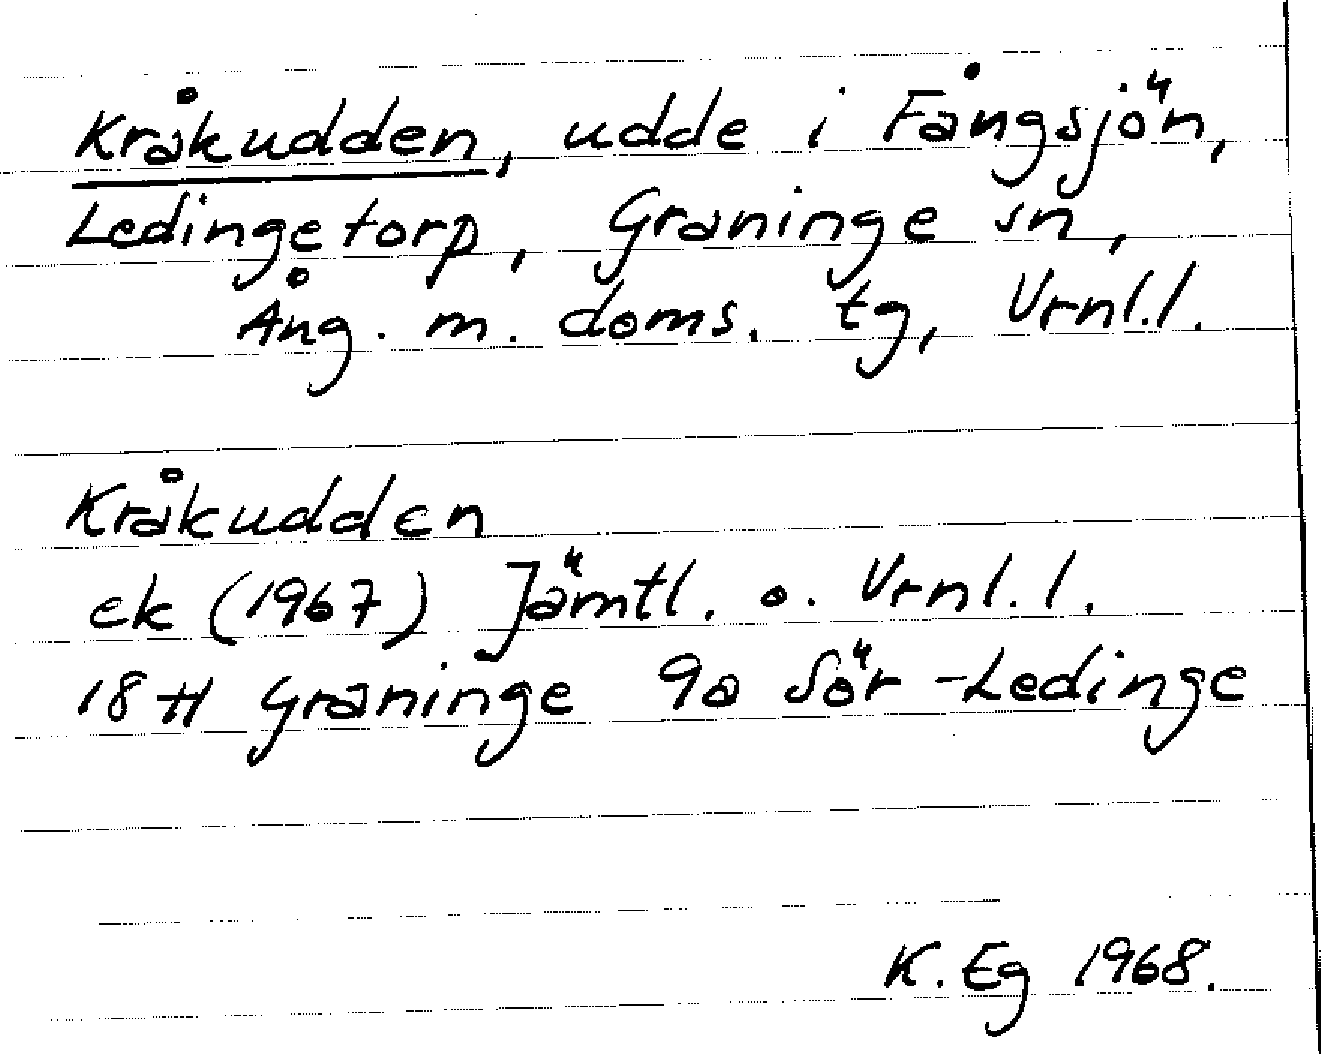 Kråkudden, udde i Fångsjön,
Ledingetorp, Graninge sn,
Ång. m. doms. tg, Vrnl.l.
Kråkudden
ek (1967) Jämtl. o. Vrnl.l.
18H Graninge 9a Sör-Ledinge
K. Eg 1968.